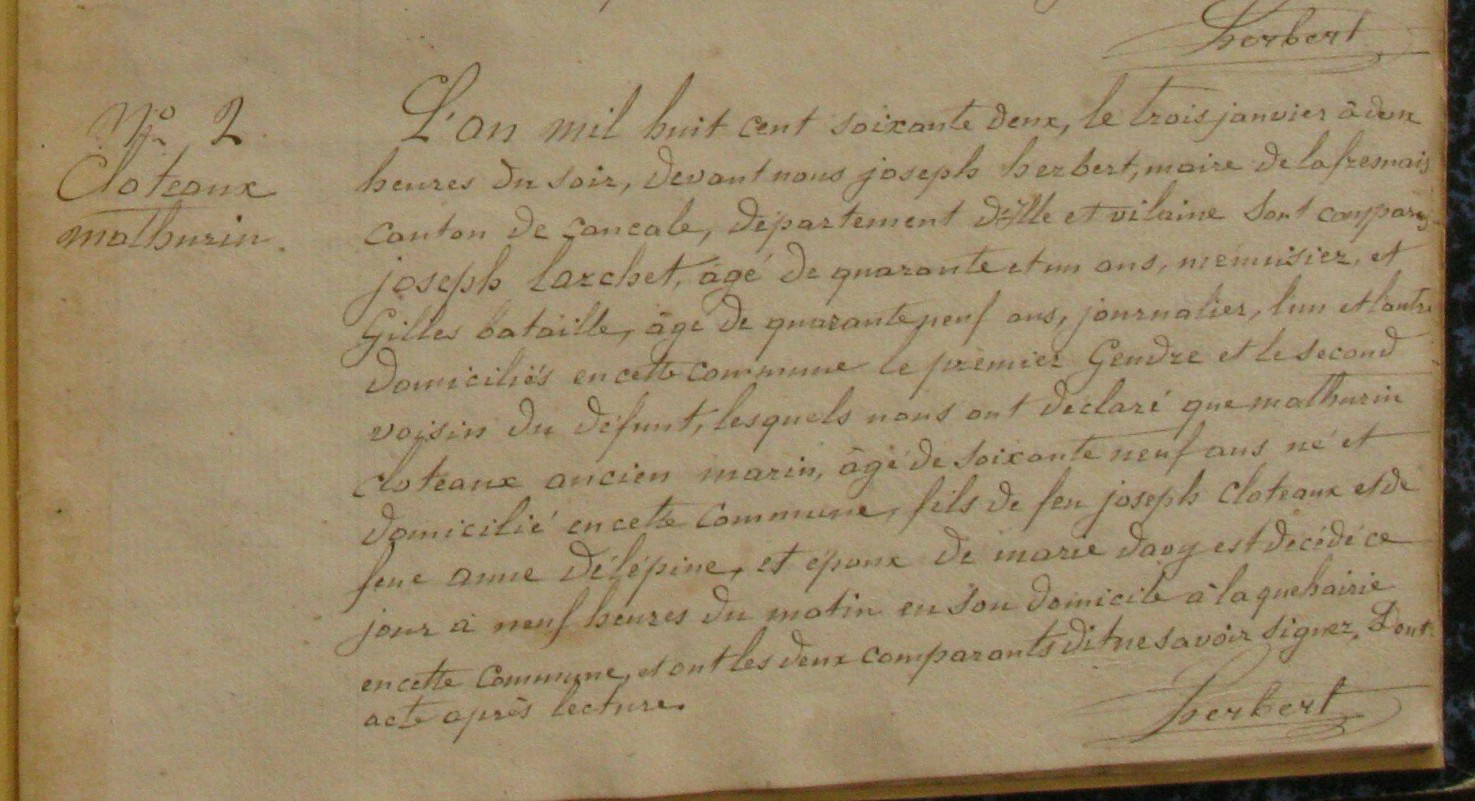 herbert
N° 2
Cloteaux
mathurin.
L'an mil huit cent soixante deux, le trois janvier à deux
heures du soir, devant nous joseph herbert, maire de lafresnais
canton de Cancale, département d'ille et vilaine sont comparus
joseph larchet, âgé de quarante et un ans, menuisier, et
Gilles bataille, âgé de quarante neuf ans, journalier, l'un et l'autre
domiciliés en cette commune le premier Gendre et le second
voisin du défunt, lesquels nous ont déclaré que mathurin
cloteaux ancien marin, âgé de soixante neuf ans né et
domicilié en cette Commune, fils de feu joseph cloteaux et de
feue anne délépine, et époux de marie davy est décédé ce
jour à neuf heures du matin en son domicile à la quehairie
en cette Commune, et ont les deux comparants dit ne savoir signer. Dont
acte après lecture.
herbert